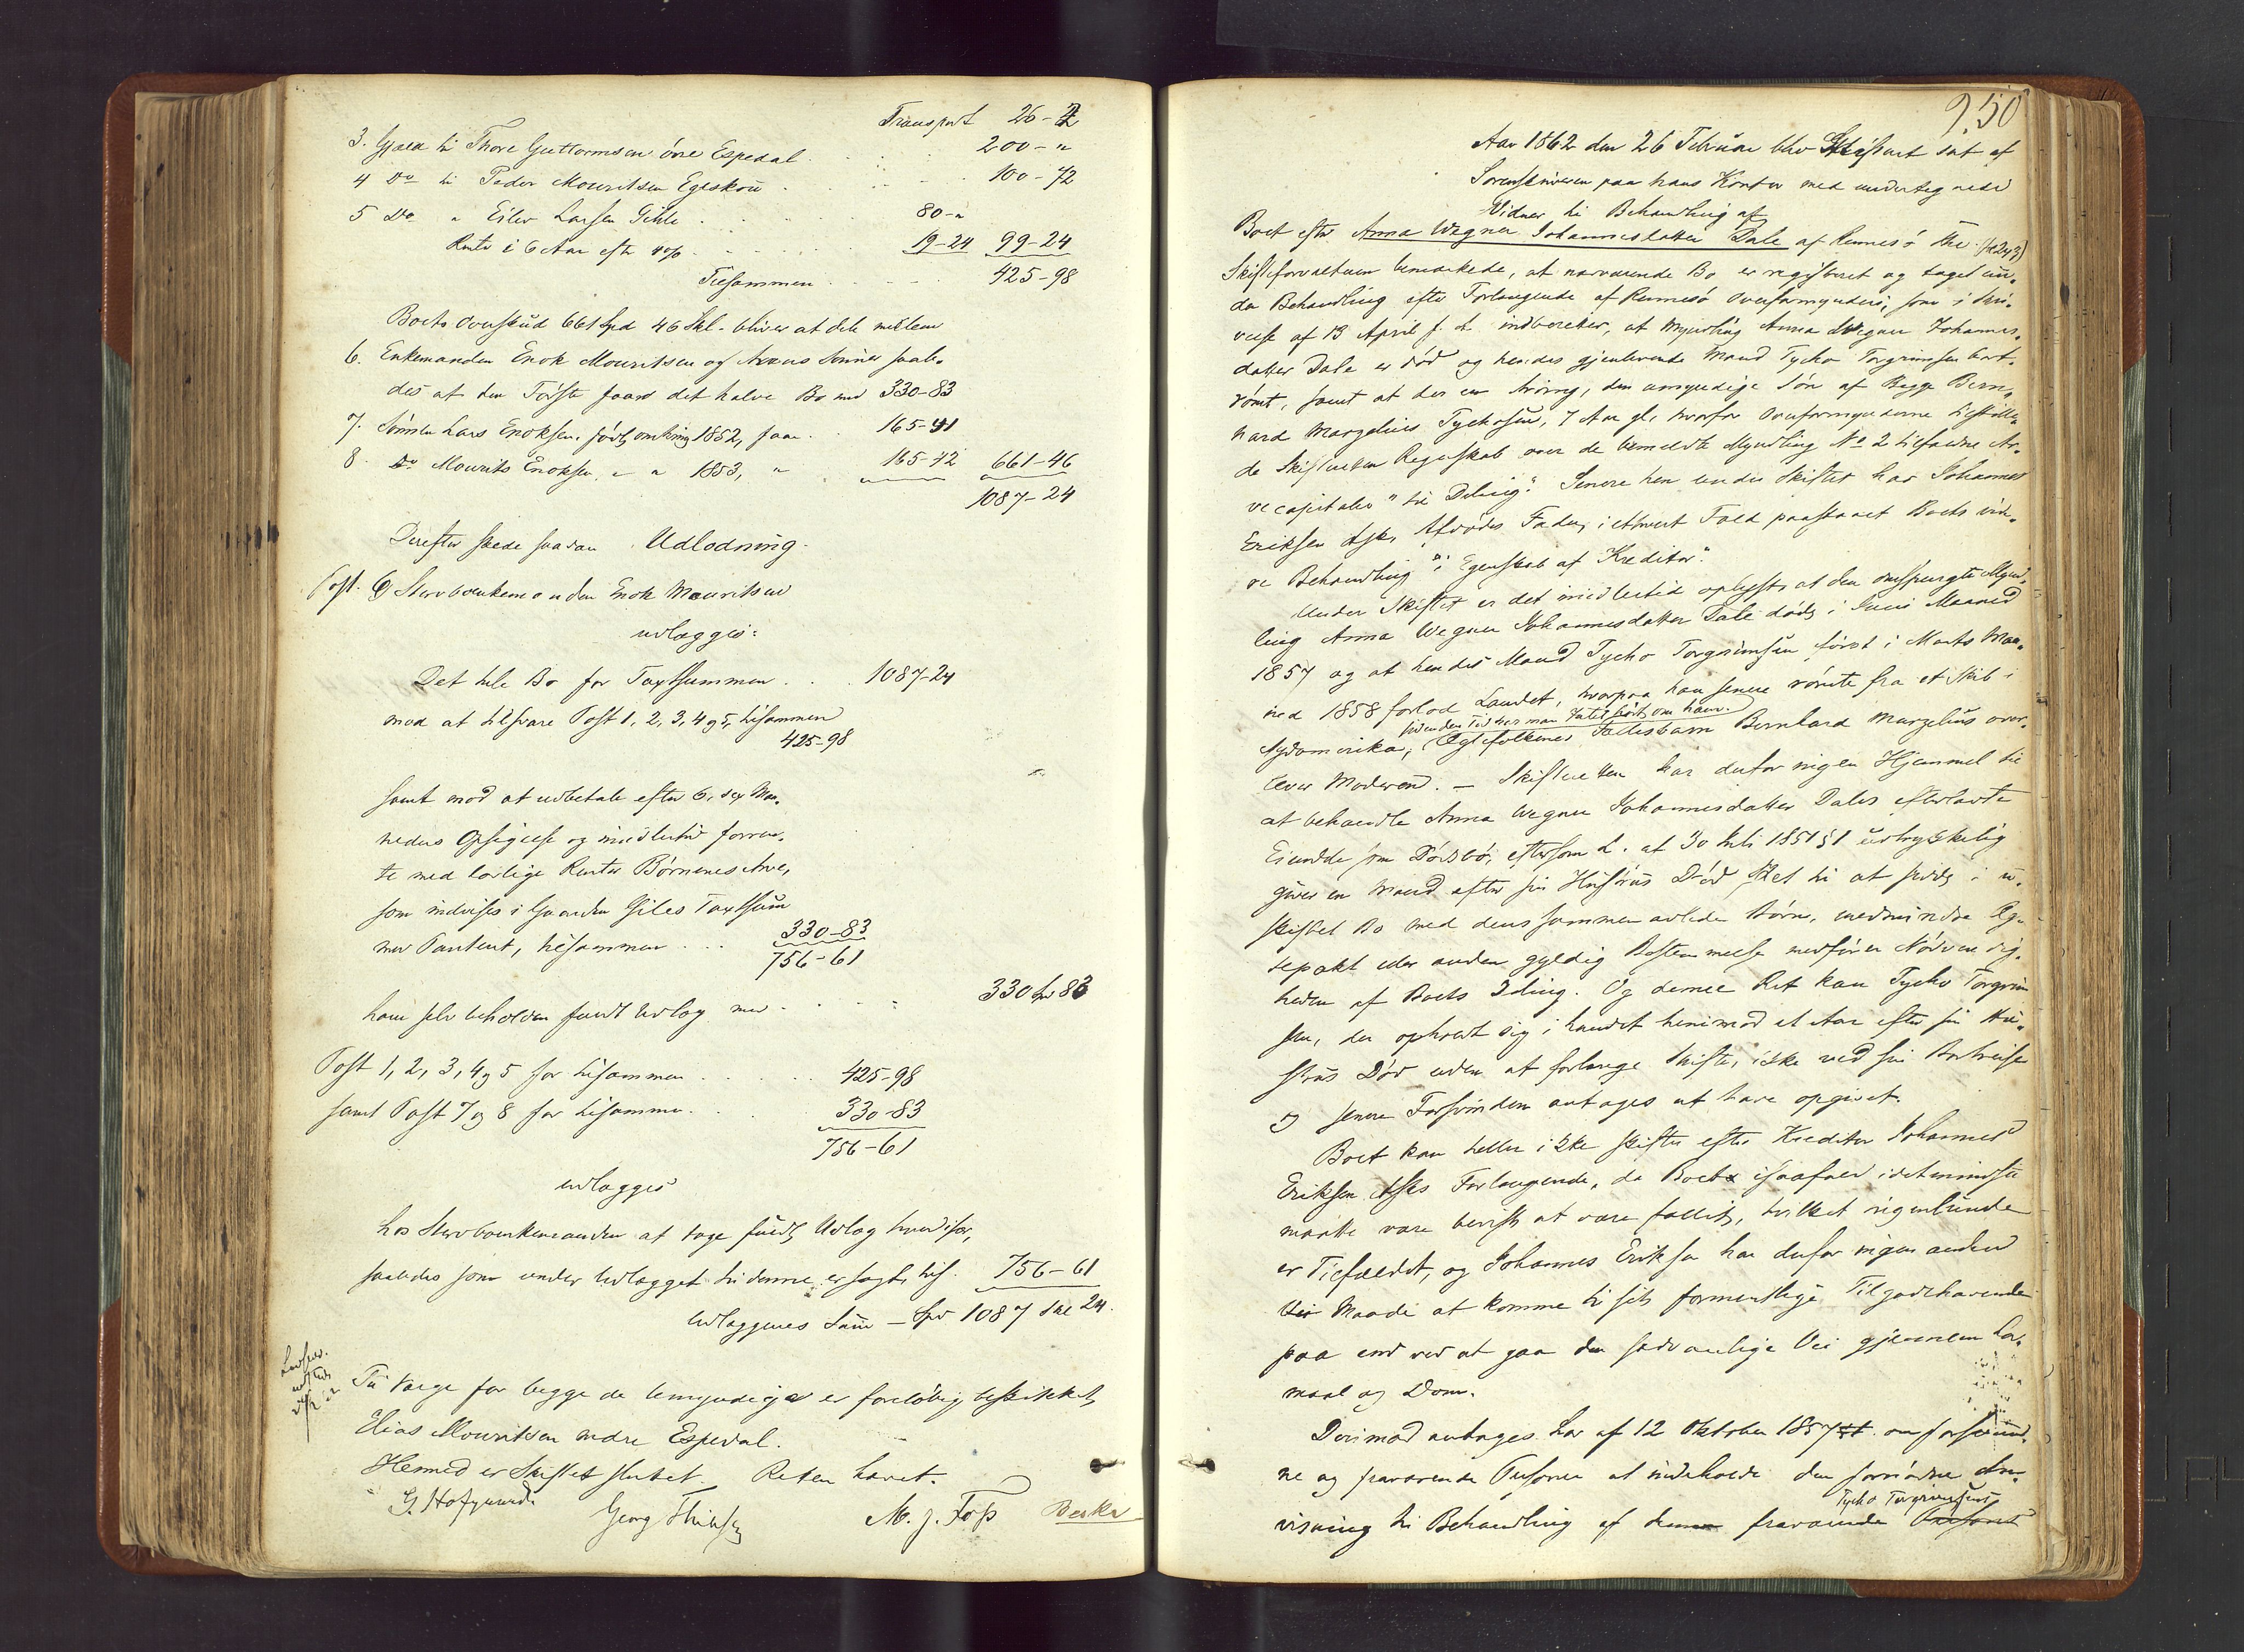 Transport 26-2
3. Gjæld til Thore Guttormsen övre Espedal . . . 200-"
4 Do til Peder Mouritsen Egeskou . . . 100-72
5 Do " Eiler Larsen Gihle . . . 80-"
Rente i 6 Aar efter 4% . . 19-24 99-24
Tilsammen . . . 425-98
Boets Overskud 661 Spd 46 Skl. bliver at dele mellem
6. Enkemanden Enok Mouritsen og Sönner saale-
des at den Förste faar det halve Bo med 330-83
7. Sönnen Lars Enoksen, född omkring 1852, faar . . 165-41
8 Do Mourits Enoksen " " 1853, " 165-42 661-46
1087-24
Derefter skede saadan Udlodning.
Post. 6 Stervboenkemanden Enok Mouritsen
udlægges:
Det hele Bo for Taxtsummen . . . 1087-24
mod at tilsvare Post 1, 2, 3, 4 og 5, tilsammen
425-98
samt mod at udbetale efter 6, sex Maa-
neders Opsigelse og imidlertid forren-
te med lovlige Renter Börnenes Arv,
som indvises i Gaarden Giles Taxtsum
med Panteret, tilsammen . . . 330-83
756-61
ham selv beholden fuldt Udlæg med . . . 330 Spd 83
Post 1, 2, 3, 4 og 5 for tilsammen . . . 425-98
samt Post 7 og 8 for tilsammen . . 330-83
756-61
udlægges
hos Stervboenkemanden at tage fuldt Udlæg hver især,
saaledes som under Udlægget til denne er sagt, tils. 756-61
Udlæggenes Sum — Spd 1087 Skl 24.
Til Værge for begge de Umyndige er foreløbig beskikket
Elias Mouritsen nedre Espedal.
Hermed er Skiftet sluttet. Retten hævet.
G. Hofgaard. Georg M. J. Foss
250
Aar 1862 den 26 Februar blev Skifteret sat af
Sorenskriveren paa hans Kontor med undertegnede
Vidner til Behandling af
Boet efter Anna Wegner Johannesdatter Dale af Rennesö
Skifteforvalteren bemærkede, at nærværende Bo er registreret og taget un-
der Behandling efter Forlangende af Rennesö Overformynderi, som i Skri-
velse af 13 April f. A. indberetter, at Myndling Anna Wegner Johannes-
datter Dale er död og hendes gjenlevende Mand Tycho Torgrimsen bort-
römt, samt at der er Arving, den umyndige Sön af Begge Bern-
hard Marzelius Tychosen, 7 Aar gl., hvorfor Overformynderne tilstille-
de Skifteretten Regnskab over de bemeldte Myndling No 2 tilfaldne Ar-
vecapitaler "til Deling". Senere hen under Skiftet har Johannes
Eriksen Ask, Afdödes Fader, i ethvert Fald paastaaet Boets vide-
re Behandling "i Egenskab af Kreditor".
Under Skiftet er det imidlertid oplyst, at den omspurgte Mynd-
ling Anna Wegner Johannesdatter Dale döde i Juni Maaned
1857 og at hendes Mand Tycho Torgrimsen först i Marts Maa-
ned 1858 forlod Landet, hvorpaa han senere römte fra et Skib i
siden den Tid har man Intet hört om ham.
Sydamerika; Ægtefolkenes Fællesbarn Bernhard Marzelius over-
lever Moderen. — Skifteretten har derfor ingen Hjemmel til
at behandle Anna Wegner Johannesdatter Dales efterladte
Eiendele som Dödsbo, eftersom L. af 30 Juli 1851 § 1 udtrykkelig
giver en Mand efter sin Hustrus Död Ret til at sidde i u-
skiftet Bo med deres sammen avlede Börn, medmindre Æg-
tepakt eller anden gyldig Bestemmelse medförer Nödvendig-
heden af Boets Deling. Og denne Ret kan Tycho Torgrim-
sen, der opholdt sig i Landet henimod et Aar efter sin Hu-
strus Död uden at forlange Skifte, ikke ved sin Bortreise
og senere Forsvinden antages at have opgivet.
Boet kan heller ikke skiftes efter Kreditor Johannes
Eriksen Asks Forlangende, da Boet isaafald idetmindste
maatte være bevist at være fallit, hvilket ingenlunde
er Tilfældet, og Johannes Eriksen har derfor ingen anden
Maade at komme til sit formentlige Tilgodehavende
paa end ved at gaa den sædvanlige Vei gjennem Lov-
maal og Dom.
Derimod antages Lov af 12 Oktober 1857 om forsvund-
ne og fraværende Personer at indeholde den fornödne An-
Tycho Torgrimsens
visning til Behandling af den fraværende